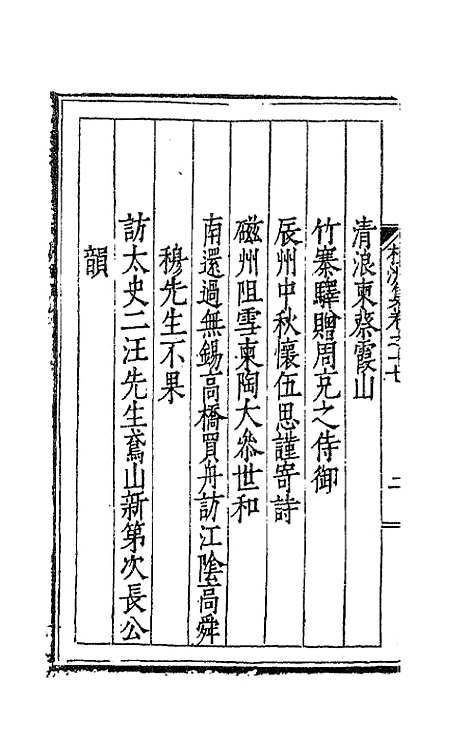 清浪柬蔡霞山
竹寨驛贈周克之侍御
辰州中秋懷伍思謹寄詩
磁州阻雪柬陶大叅世和
南還過無錫高橋買舟訪江陰高舜
穆先生不果
訪太史二汪先生鳶山新第次長公
韻